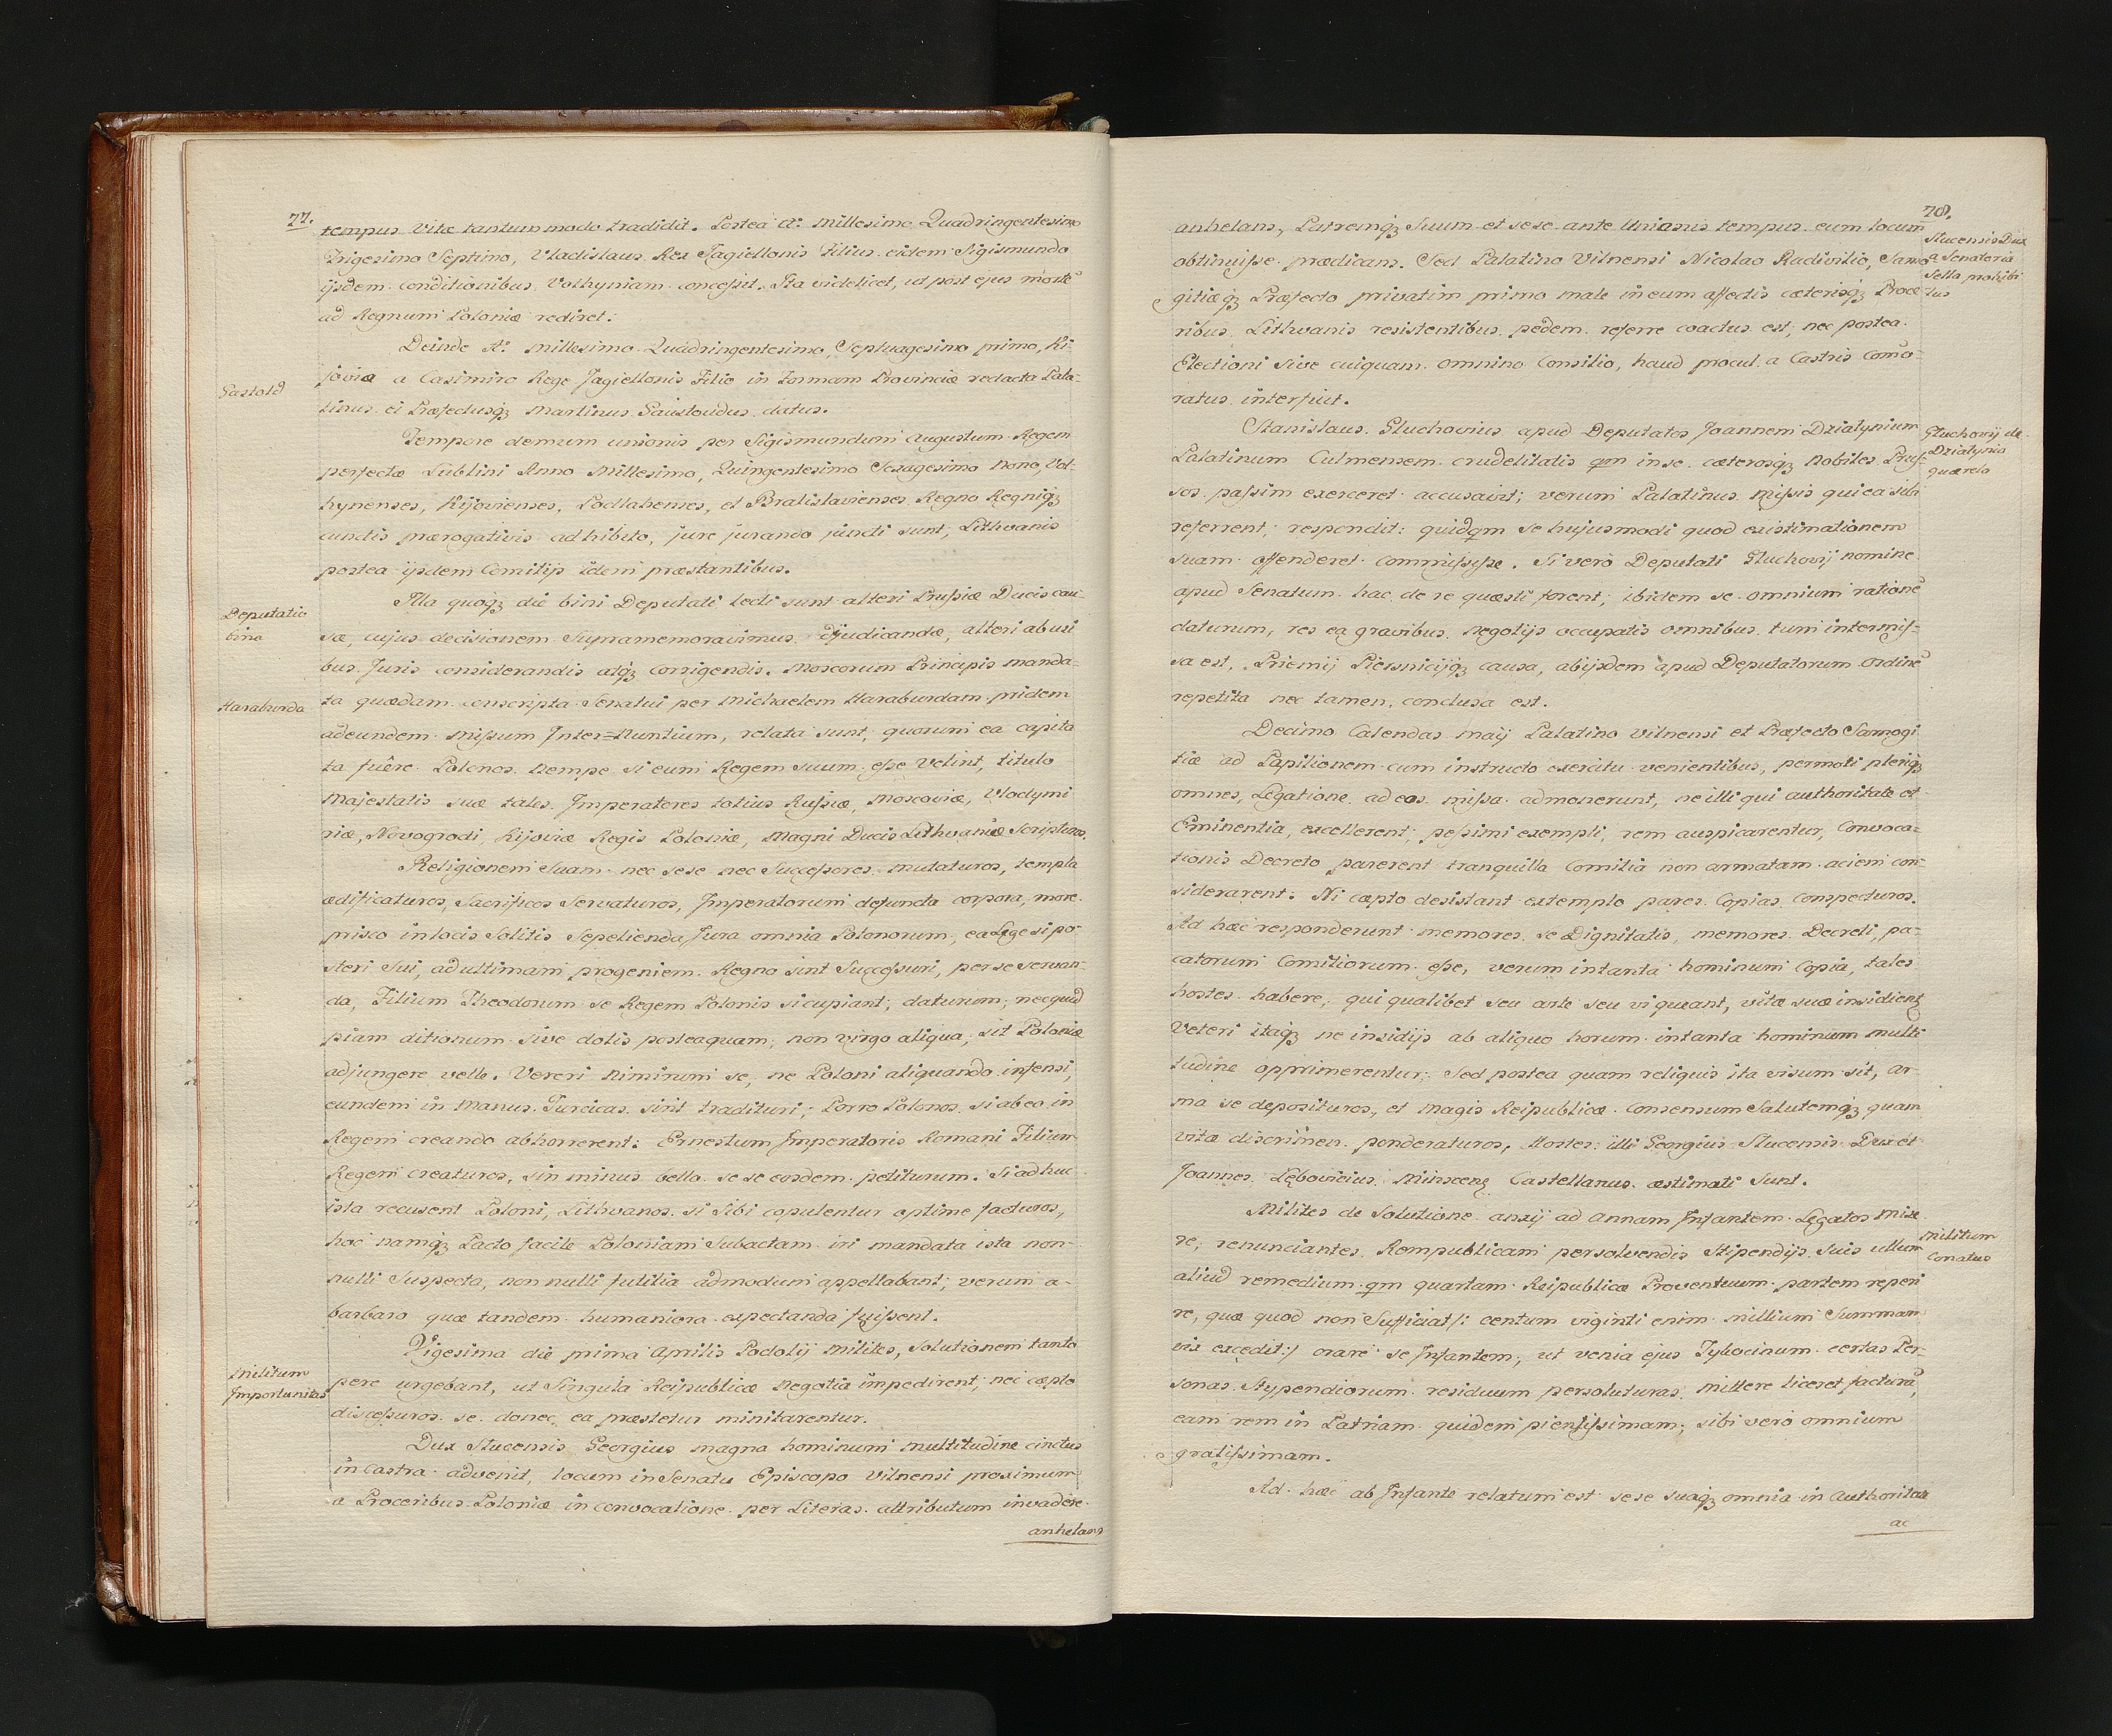 77.
tempus vitæ tantummodo tradidit. Postea Aº. Millesimo Quadringentesimo
Trigesimo Septimo, Vladislaus Rex Jagiellonis Filius eidem Sigismundo
ijsdem conditionibus Volhyniam concessit. Ita videlicet, ut post ejus mortē
ad Regnum Poloniæ rediret.
Deinde Aº. Millesimo Quadringentesimo Septuagesimo primo, Ki-
Gastold
joviæ a Casimiro Rege Jagiellonis Filio in Formam Provinciæ redacta Pala-
tinus ei Præfectusq; Martinus Gaustoudus datus.
Tempore demum unionis per Sigismundum Augustum Regem
perfectæ Lublini Anno Millesimo, Quingentesimo Sexagesimo Nono, Vol-
hynenses, Kijovienses, Podlahenses, et Bratislavienses Regno Regniq;
cundis prærogativis adhibito, jure jurando juncti sunt, Lithvanis
postea ijsdem Comitijs idem præstantibus.
Illa quoq; die bini Deputati lecti sunt alteri Prussiæ Ducis cau-
Deputatio
bina
sæ, cujus decisionem supramemoravimus dijudicandæ, alteri abusi
bus Juris considerandis atq; corrigendis. Moscorum Principis manda-
Haraburda
ta quædam conscripta Senatui per Michaelem Haraburdam pridem
ad eundem missum Inter=Nuntium, relata sunt, quorum ea capita
ta fuêre. Polonos nempe si eum Regem suum esse velint, titulo
Majestatis suæ tales. Imperatores totius Russiæ, Moscoviæ, Vlodymi
riæ, Novogrodi, Kijoviæ Regis Poloniæ, Magni Ducis Lithvaniæ Scripturos.
Religionem Suam nec sese nec Successores mutaturos, templa
ædificaturos, Sacrificos Servaturos, Imperatorum defuncta corpora, more
prisco in locis Solitis Sepelienda, Jura omnia Polonorum, ea Lege si po-
steri Sui, ad ultimam progeniem Regno sint Successuri, per se servan-
da, Filium Theodorum se Regem Polonis si cupiant; daturum, nec quid
piam ditionum sive dotis posteaquam; non virgo aliqua, sit Poloniæ
adjungere velle. Vereri Nimirum se, ne Poloni aliquando infensi,
eundem in Manus Turcicas sint tradituri; Porro Polonos si ab eo in
Regem creando abhorrerent: Ernestum Imperatoris Romani Filium
Regem creaturos, sin minus bello se se eosdem petiturum. Si adhuc
ista recusent Poloni, Lithvanos si Sibi copulentur optime facturos,
hoc namq; Pacto facile Poloniam Subactam iri mandata ista non-
nulli Suspecta, non nulli futilia admodum appellabant; verum a-
barbaro quæ tandem humaniora expectanda fuissent.
Vigesima die prima Aprilis Podolij Milites, Solutionem tanto
Militum
Importunitas
pere urgebant, ut Singula Reipublicæ Negotia impedirent, nec cæpto
discessuros se donec ea præstetur minitarentur.
Dux Slucensis Georgius magna hominum multitudine cinctus
in Castra advenit, locum in Senatu Episcopo Vilnensi proximum
a Proceribus Poloniæ in convocatione per Literas attributum invadere
anhelans
78.
anhelans, Patremq; Suum et sese ante Unionis tempus eum locum
Slucensis Dux
a Senatoria
Sella prohibi
tus
obtinuisse prædicans. Sed Palatino Vilnensi Nicolao Radivilio, Samo
gitiæq; Præfecto privatim primo male in eum affectis cæterisq; Proce
ribus Lithvanis resistentibus pedem referre coactus est, nec postea
Electioni sive cuiquam omnino Consilio, haud procul a Castris Comō-
ratus interfuit.
Stanislaus Gluchovius apud Deputatos Joannem Dzialynium
Gluchovij de
Dzialynio
quærela
Palatinum Culmensem crudelitatis qm in se cæterosq; Nobiles Prus-
sos passim exerceret accusavit; verum Palatinus missis qui ea sibi
referrent, respondit: quidqm se hujusmodi quod existimationem
suam offenderet commisisse. Si vero Deputati Gluchovij nomine
apud Senatum hac de re quæsti forent, ibidem se omnium rationē
daturum, res ea gravibus Negotijs occupatis omnibus tum intermis-
sa est. Priemij Piersnicijq; causa, ab ijsdem apud Deputatorum ordinē
repetita nec tamen conclusa est.
Decimo Calendas Maij Palatino Vilnensi et Præfecto Samogi
tiæ ad Papilionem cum instructo exercitu venientibus, permoti pleriq;
omnes, Legatione ad eos missa admonerunt, ne illi qui authoritate et
Eminentia, excellerent; pessimi exempli, rem auspicarentur, Convoca-
tionis Decreto parerent tranquilla Comitia non armatam aciem con-
siderarent. Ni cæpto desistant extemplo pares Copias Conspecturos.
Ad hæc responderunt memores se Dignitatis, memores Decreti, pa-
catorum Comitiorum esse, verum in tanta hominum Copia, tales
hostes habere, qui qualibet seu arte seu vi queant, vitæ suæ insidient
Veteri itaq; ne insidijs ab aliquo horum in tanta hominum multi
tudine opprimerentur; Sed postea quam reliquis ita visum sit, ar-
ma se deposituros, et magis Reipublicæ Consensum Salutemq; quam
vitæ discrimen ponderaturos, Hostes illi Georgius Slucensis Dux et
Joannes Lębovicius Minscens Castellanus æstimati Sunt.
Milites de Solutione anxij ad Annam Infantem Legatos mise
Militum
Conatus
re, renunciantes Rempublicam persolvendis Stipendijs Suis ullum
aliud remedium qm quartam Reipublicæ Proventuum partem reperi
re, quæ quod non Sufficiat /: centum viginti enim millium Summam
vix excedit :/ orare se Infantem, ut venia ejus Tykocinum certas Per-
sonas Stypendiorum residuum persoluturas mittere liceret facturā,
eam rem in Patriam quidem pientissimam; sibi vero omnium
gratissimam.
Ad hæc ab Infante relatum est sese suaq; omnia in Authoritate
ac